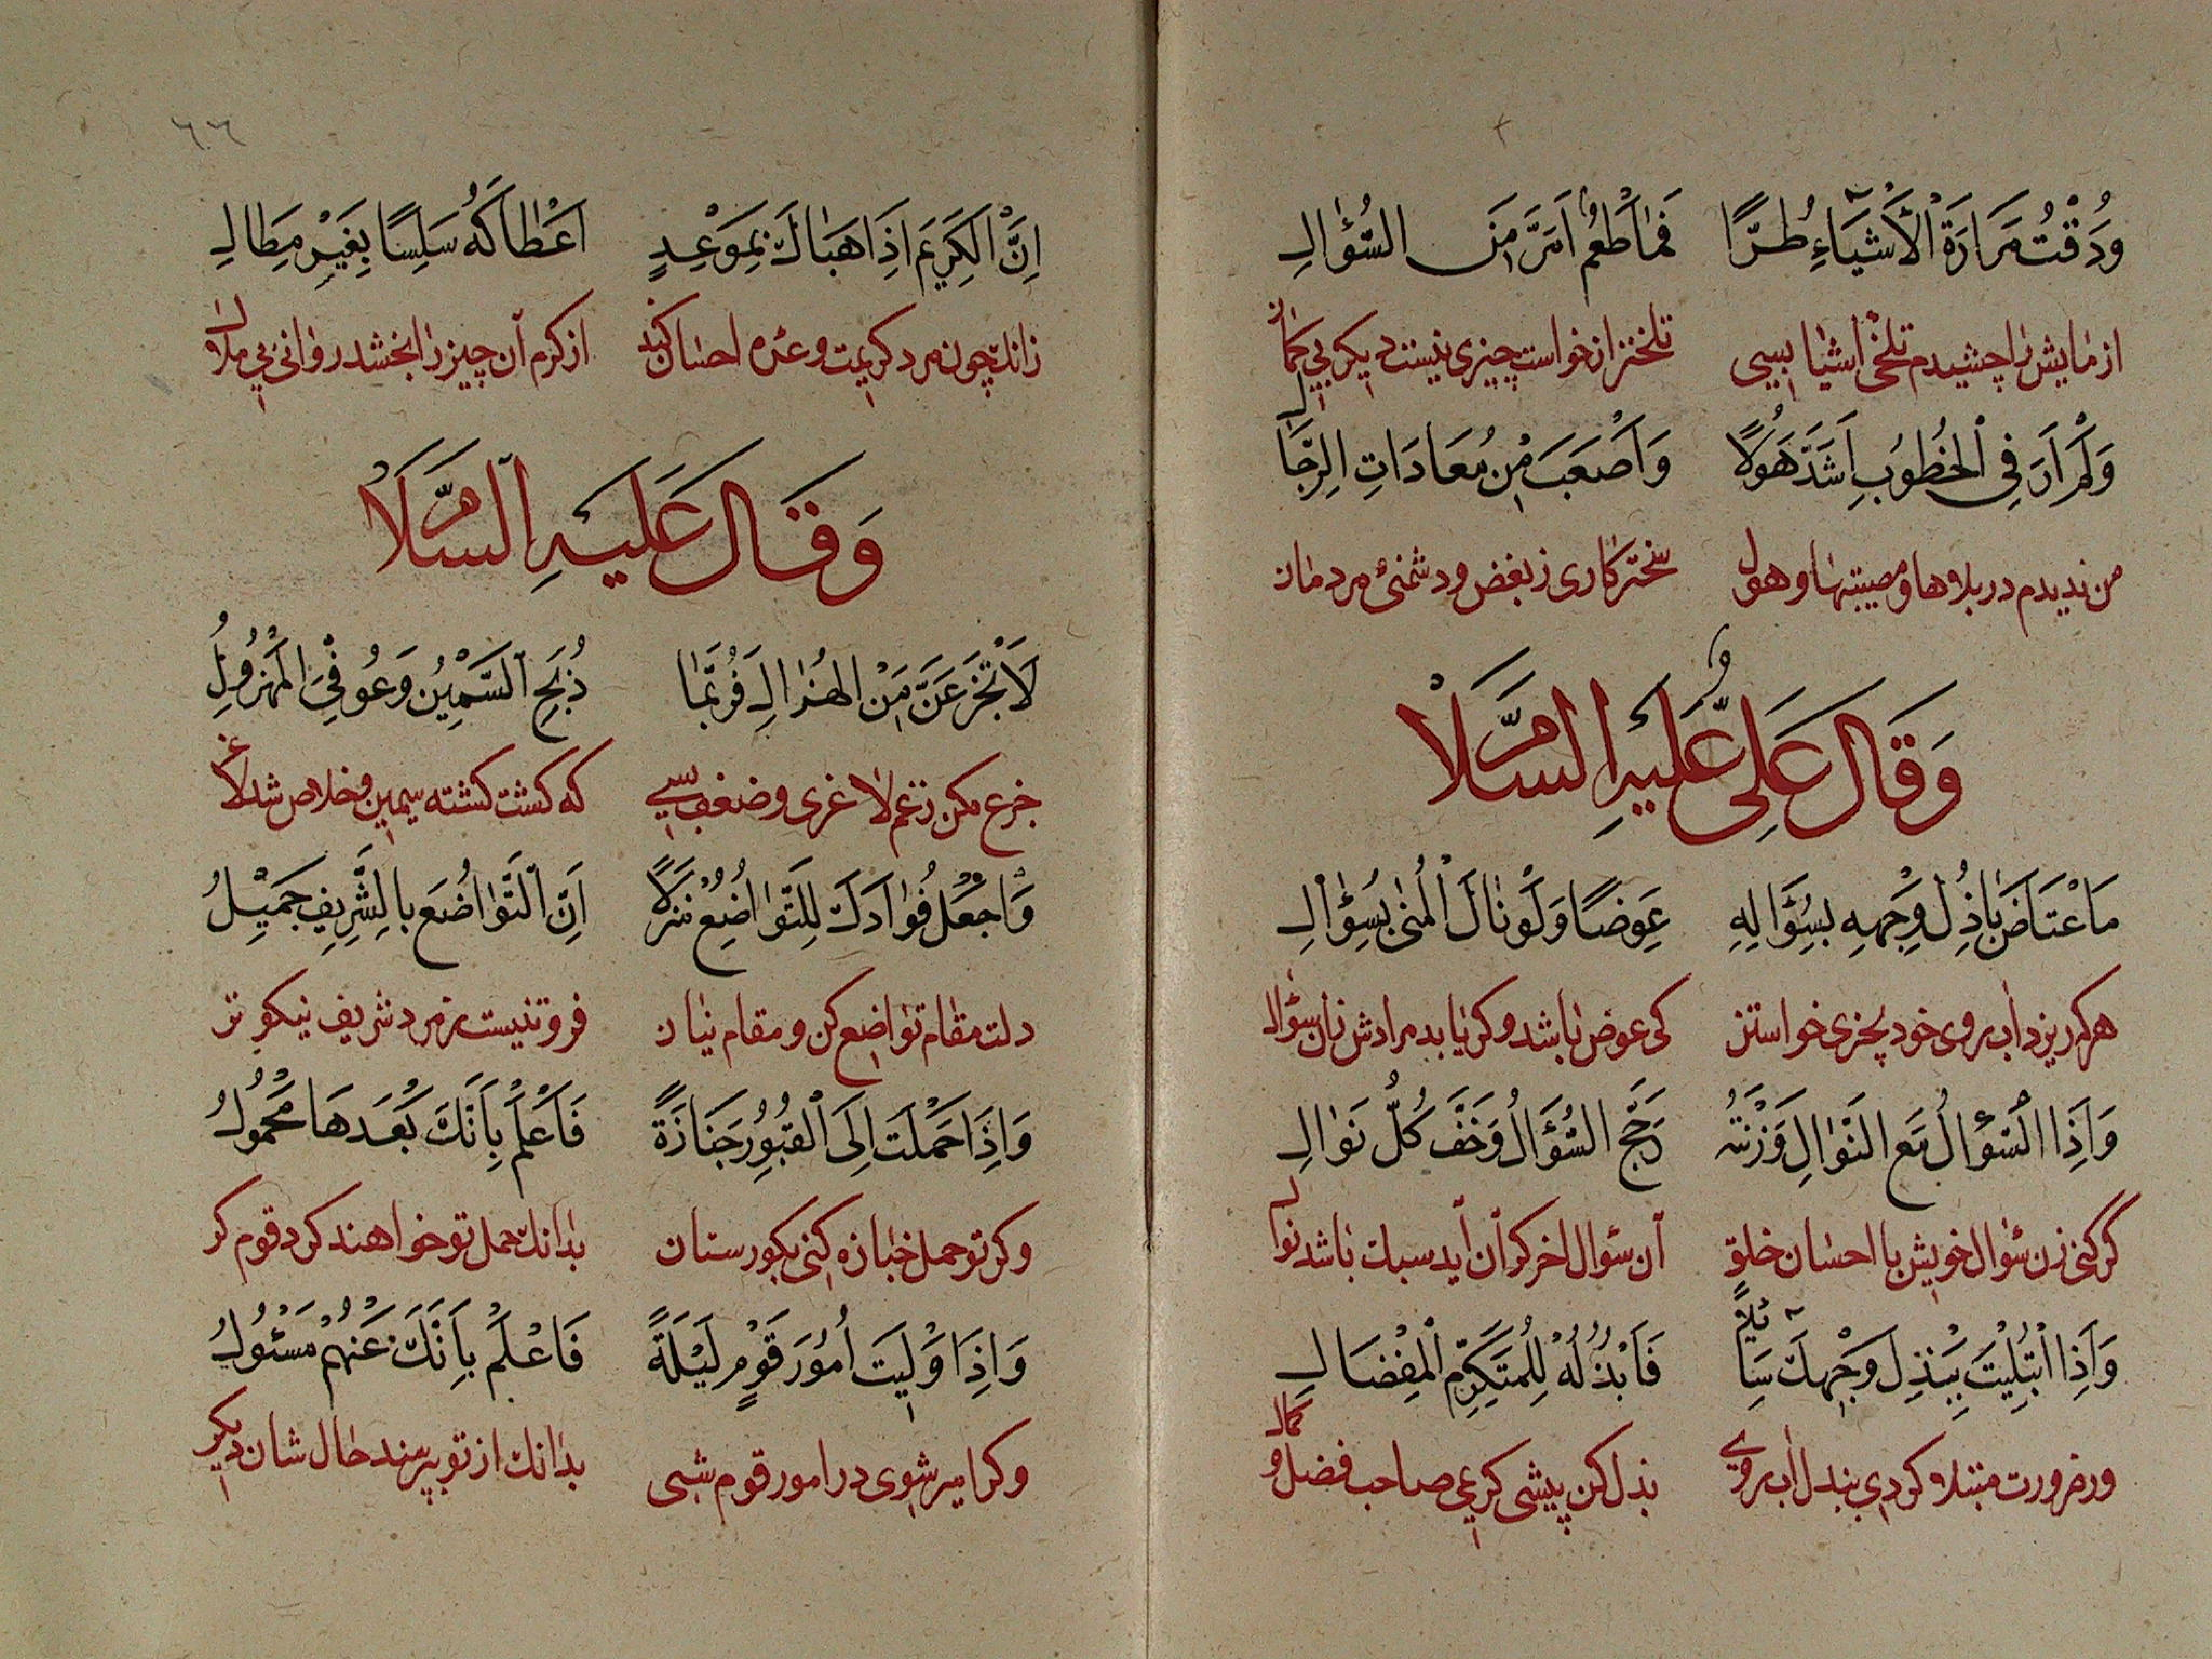 وَذُقْتُ مَرَارَةَ الْأَشْيَاءِ طُرًّا فَمَا طَعْمٌ اَمَرَّ مِنَ السُّؤَالِ
از مایش را چشیدم تلخی اشیا بسی تلختر از خواست چیزی نیست دیکر بی کمان
وَلَمْ اَرَ فِی الْخُطُوبِ اَشَدَّ هَوْلًا وَاَصْعَبَ مِنْ مُعَادَاتِ الرِّجَالِ
من ندیدم در بلاها و مصیبتها و هول سختر کاری ز بغض و دشمنئ مردمان
وَقَالَ عَلِیٌّ عَلَیْهِ السَّلَامُ
مَا اعْتَاضَ بَاذِلُ وَجْهِهِ بِسُؤَالِهِ عِوَضًا وَلَوْ نَالَ الْمُنٰی بِسُؤَالِ
هرکه ریزد اب روی خود بچزی خواستن کی عوض باشد وکر یابد مرادش زان سؤال
وَاِذَا السُّؤَالُ مَعَ النَّوَالِ وَزَنْتَهُ رَجَحَ السُّؤَالُ وَخَفَّ کُلُّ نَوَالِ
گر کنی زن سؤال خویش با احسان خلق آن سؤال اخر کران آید سبک باشد نوال
وَاِذَا ابْتُلِیْتَ بِبَذْلِ وَجْهِکَ سَائِلًا فَابْذُلْهُ لِلْمُتَکَرِّمِ الْمِفْضَالِ
ور ضرورت مبتلا کردی ببذل اب روی بذل کن پیشی کریمی صاحب فضل و کمال
٦٦
اِنَّ الْکَرِیْمَ اِذَا حَبَاکَ بِمَوْعِدٍ اَعْطَاکَهُ سَلِسًا بِغَیْرِ مِطَالِ
زانک چون مرد کریمت وعدهٔ احسان کند از کرم آن چیز را بخشد روانی بی ملال
وَقَالَ عَلَیْهِ السَّلَامُ
لَا تَجْزَعَنَّ مِنَ الْهُزَالِ فَرُبَّمَا ذُبِحَ السَّمِیْنُ وَعُوفِیَ الْمَهْزُولُ
جزع مکن زغم لاغری و ضعف بسی که کشت کشته سمین و خلاص شد لاغر
وَاجْعَلْ فُوَادَکَ لِلتَّوَاضُعِ مَنْزِلًا اِنَّ التَّوَاضُعَ بِالشَّرِیْفِ جَمِیْلُ
دلت مقام تواضع کن و مقام نیاز فروتنیست ز مرد شریف نیکوتر
وَاِذَا حَمَلْتَ اِلَی الْقُبُوْرِ جَنَازَةً فَاعْلَمْ بِاَنَّکَ بَعْدَهَا مَحْمُولُ
وکر تو حمل جنازه کنی بکورستان بدانک حمل تو خواهند کرد قوم کر
وَاِذَا وُلِیْتَ اُمُوْرَ قَوْمٍ لَیْلَةً فَاعْلَمْ بِاَنَّکَ عَنْهُمْ مَسْئُوْلُ
وکر امیر شوی در امور قوم شبی بدانک از تو بپرسند حال شان دیکر